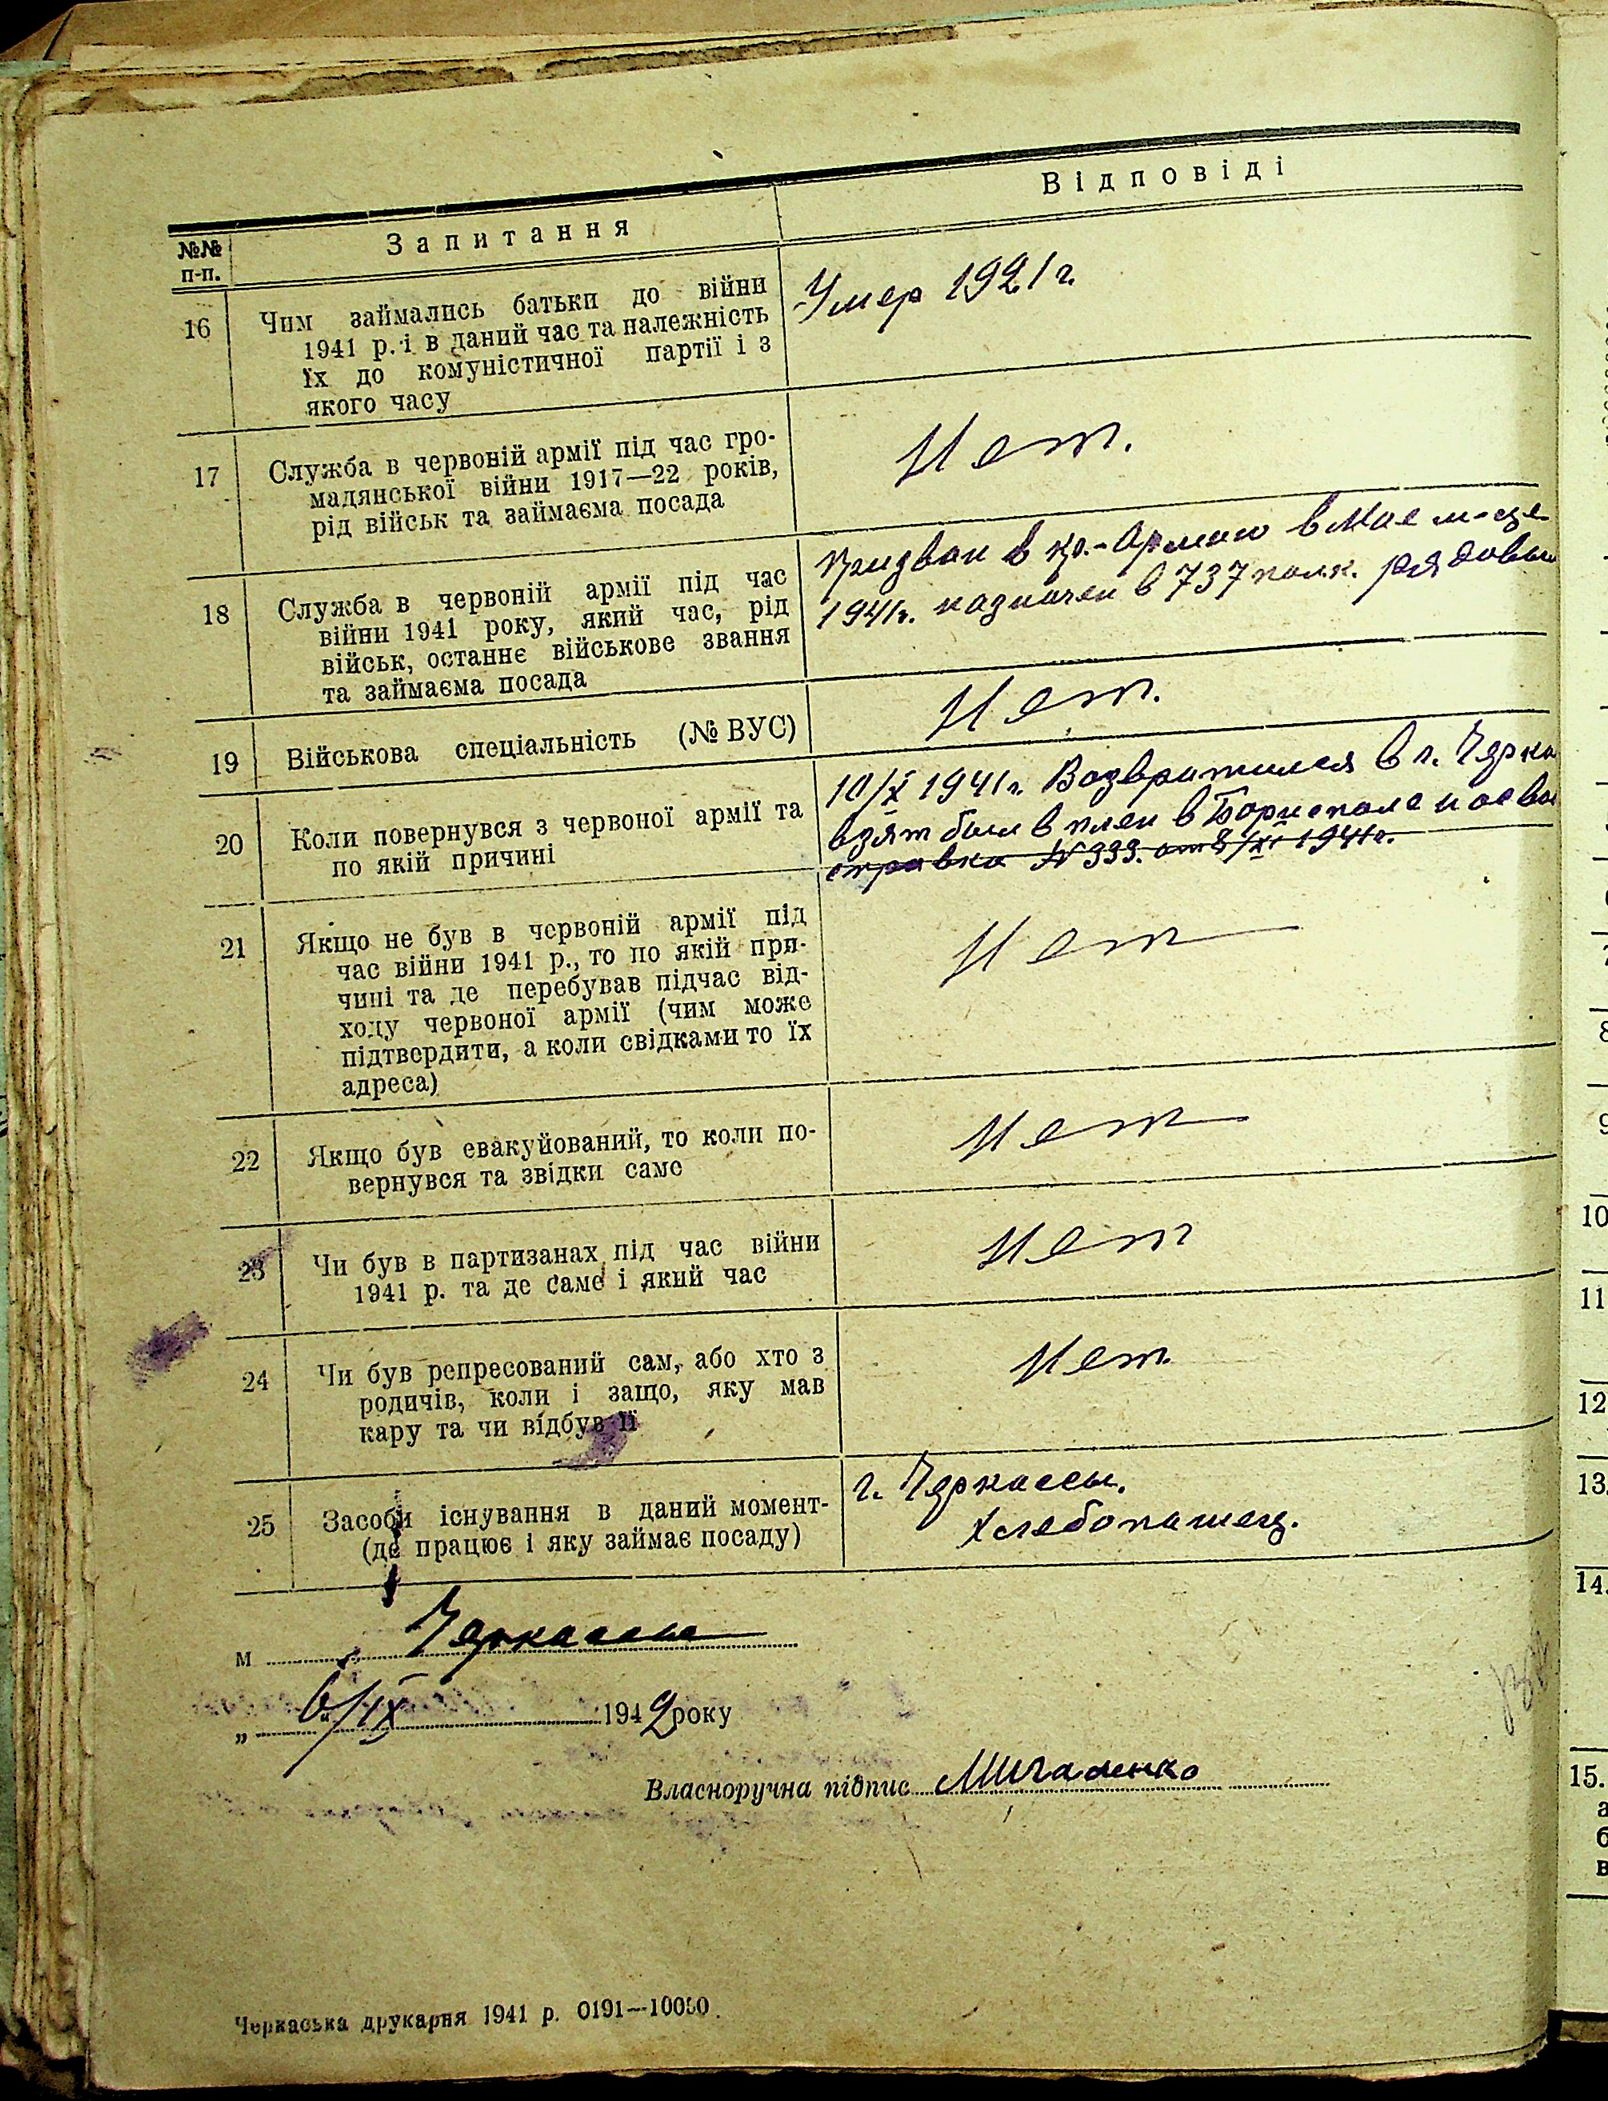 №№ п-п.
Запитання
Відповіді
16
Чим займались батьки до війни
1941 р. і в даний час та належність
їх до комуністичної партії і з
якого часу
Умер 1921 г.
17
Служба в червоній армії під час гро-
мадянської війни 1917—22 років,
рід військ та займаєма посада
Нет.
18
Служба в червоній армії під час
війни 1941 року, який час, рід
військ, останнє військове звання
та займаєма посада
Призван в кр.-Армию в Мае м-це
1941г. назначен в 737 полк. рядовым
19
Військова спеціальність (№ ВУС)
Нет.
20
Коли повернувся з червоної армії та
по якій причині
10/X 1941 г. Возвратился в г. Черка
взят был в плен в Борисполе и
справка № 333. от 8/XI 1941г.
21
Якщо не був в червоній армії під
час війни 1941 р., то по якій при-
чині та де перебував підчас від-
ходу червоної армії (чим може
підтвердити, а коли свідками то їх
адреса)
Нет
22
Якщо був евакуйований, то коли по-
вернувся та звідки саме
Нет
23
Чи був в партизанах під час війни
1941 р. та де саме і який час
Нет
24
Чи був репресований сам, або хто з
родичів, коли і защо, яку мав
кару та чи відбув її
Нет.
25
Засоби існування в даний момент-
(де працює і яку займає посаду)
г. Черкассы.
Хлебопашец.
м Черкассы
„ 6/IX " 1942 року
Власноручна підпис
Черкаська друкарня 1941 р. 0191—10000
8
9
10
11
12
13.
14.
15.
а
б
в